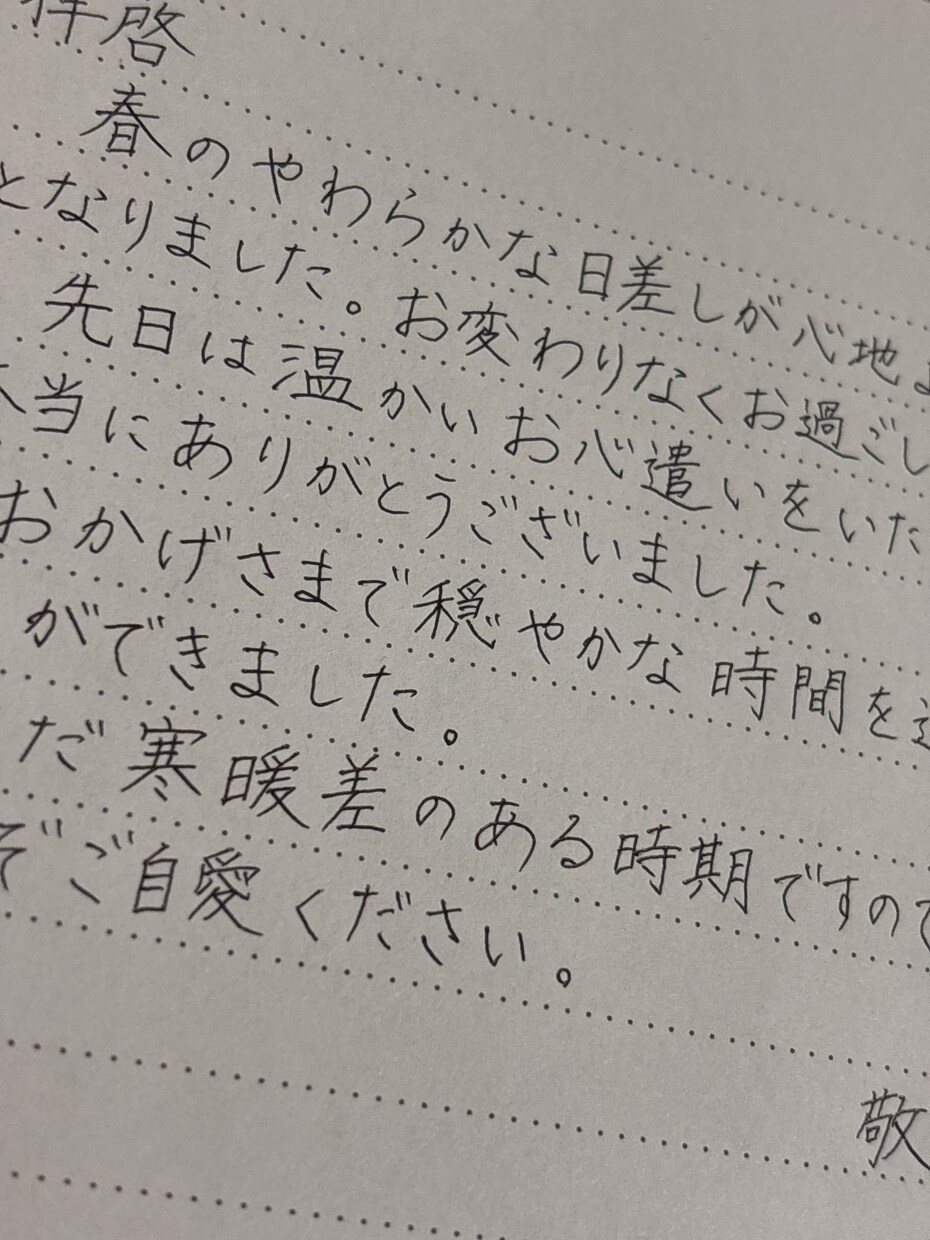 拝啓
春のやわらかな日差しが心地よ
となりました。お変わりなくお過ごし
先日は温かいお心遣いをいた
本当にありがとうございました。
おかげさまで穏やかな時間を過
ができました。
だ寒暖差のある時期ですので
ぞご自愛ください。
敬